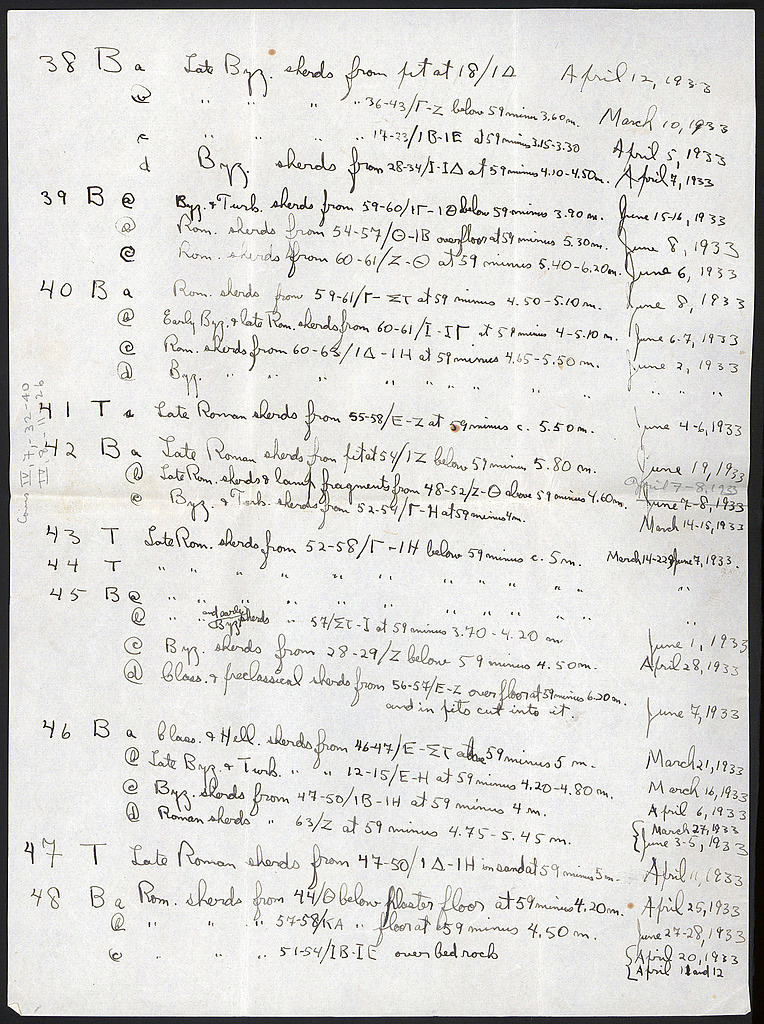 38 B a Late Byz. sherds from pit at 18/ΙΔ April 12, 1933
ⓑ " " " " 36-43/Γ-Ζ below 59 minus 3.60 m. March 10, 1933
c " " " " 17-23/ΙΒ-ΙΕ at 59 minus 3.15-3.30 April 5, 1933
d Byz. sherds from 28-34/Ι-ΙΔ at 59 minus 4.10-4.50 m. April 7, 1933
39 B ⓐ Byz. & Turk. sherds from 59-60/ΙΓ-ΙΘ below 59 minus 3.90 m. June 15-16, 1933
ⓑ Rom. sherds from 54-57/Θ-ΙΒ over floor at 59 minus 5.30 m. June 8, 1933
ⓒ Rom. sherds from 60-61/Ζ-Θ at 59 minus 5.40-6.20 m. June 6, 1933
40 B a Rom. sherds from 59-61/Γ-ΣΤ at 59 minus 4.50-5.10 m. June 8, 1933
ⓑ Early Byz. & late Rom. sherds from 60-61/Ι-ΙΓ at 59 minus 4-5.10 m. June 6-7, 1933
ⓒ Rom. sherds from 60-63/ΙΔ-ΙΗ at 59 minus 4.65-5.50 m. June 2, 1933
ⓓ Byz. " " " " " " " " " " "
41 T a Late Roman sherds from 55-58/Ε-Ζ at 59 minus c. 5.50 m. June 4-6, 1933
42 B a Late Roman sherds from pit at 54/ΙΖ below 59 minus 5.80 m. June 19, 1933
April 7-8, 1933
ⓑ Late Rom. sherds & lamp fragments from 48-52/Ζ-Θ above 59 minus 4.60 m. June 7-8, 1933
c Byz. & Turk. sherds from 52-54/Γ-Η at 59 minus 4 m. March 14-15, 1933
43 T Late Rom. sherds from 52-58/Γ-ΙΗ below 59 minus c. 5 m. March 14-22 & June 7, 1933.
44 T " " " " " " " " " " "
45 B ⓐ " " " " " " " " " " "
ⓑ " " and early Byz. sherds " 57/ΣΤ-Ι at 59 minus 3.70-4.20 m June 1, 1933
ⓒ Byz. sherds from 28-29/Ζ below 59 minus 4.50 m. April 28, 1933
ⓓ Class. & preclassical sherds from 56-57/Ε-Ζ over floor at 59 minus 6.20 m.
and in pits cut into it. June 7, 1933
46 B a Class. & Hell. sherds from 46-47/Ε-ΣΤ at 59 minus 5 m. March 21, 1933
ⓑ Late Byz. & Turk. " " 12-15/Ε-Η at 59 minus 4.20-4.80 m. March 16, 1933
ⓒ Byz. sherds from 47-50/ΙΒ-ΙΗ at 59 minus 4 m. April 6, 1933
ⓓ Roman sherds " 63/Ζ at 59 minus 4.75-5.45 m. { March 27, 1933
{ June 3-5, 1933
47 T Late Roman sherds from 47-50/ΙΔ-ΙΗ in sand at 59 minus 5 m. April 11, 1933
48 B a Rom. sherds from 44/Θ below plaster floor at 59 minus 4.20 m. April 25, 1933
ⓑ " " " 57-58/ΚΑ " floor at 59 minus 4.50 m. June 27-28, 1933
ⓒ " " " 51-54/ΙΒ-ΙΕ over bedrock { April 20, 1933
{ April 11 and 12
IV, 7, 32-40
IV, 2, 11-26